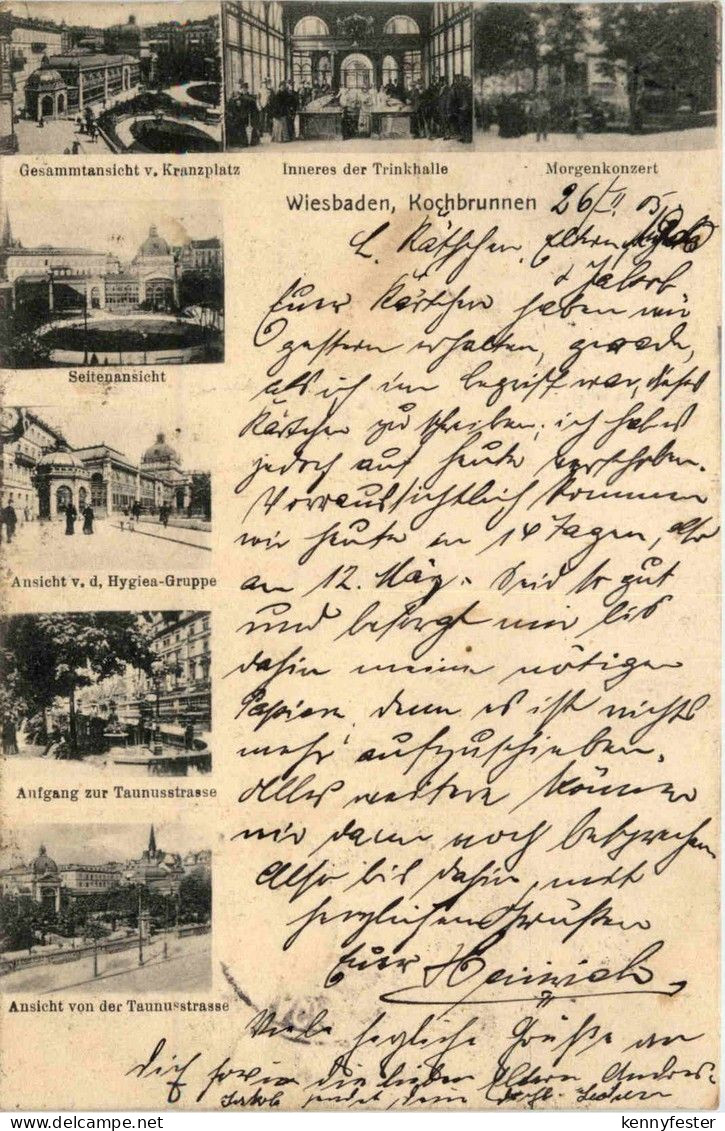 Gesammtansicht v. Kranzplatz
Inneres der Trinkhalle
Morgenkonzert
Wiesbaden, Kochbrunnen 26/II 05
L. Käthchen, Eltern
& Jakob
Euer Kärtchen haben wir
gestern erhalten, gerade,
als ich im Begriff war, dieses
Kärtchen zu schreiben; ich habe es
jedoch auf heute verschoben.
Vorraussichtlich kommen
wir heute in 14 Tagen, also
am 12. März. Seid so gut
und besorgt mir bis
dahin meine nötigen
Papiere, denn es ist nichts
mehr aufzuschieben.
Alles weitere können
wir dann noch besprechen
Also bis dahin, mit
herzlichen Grüßen
Euer Heinrich
Viele herzliche Grüße an
dich sowie die lieben Eltern
Jakob sendet
Seitenansicht
Ansicht v. d, Hygiea-Gruppe
Aufgang zur Taunusstrasse
Ansicht von der Taunusstrasse
kennyfester